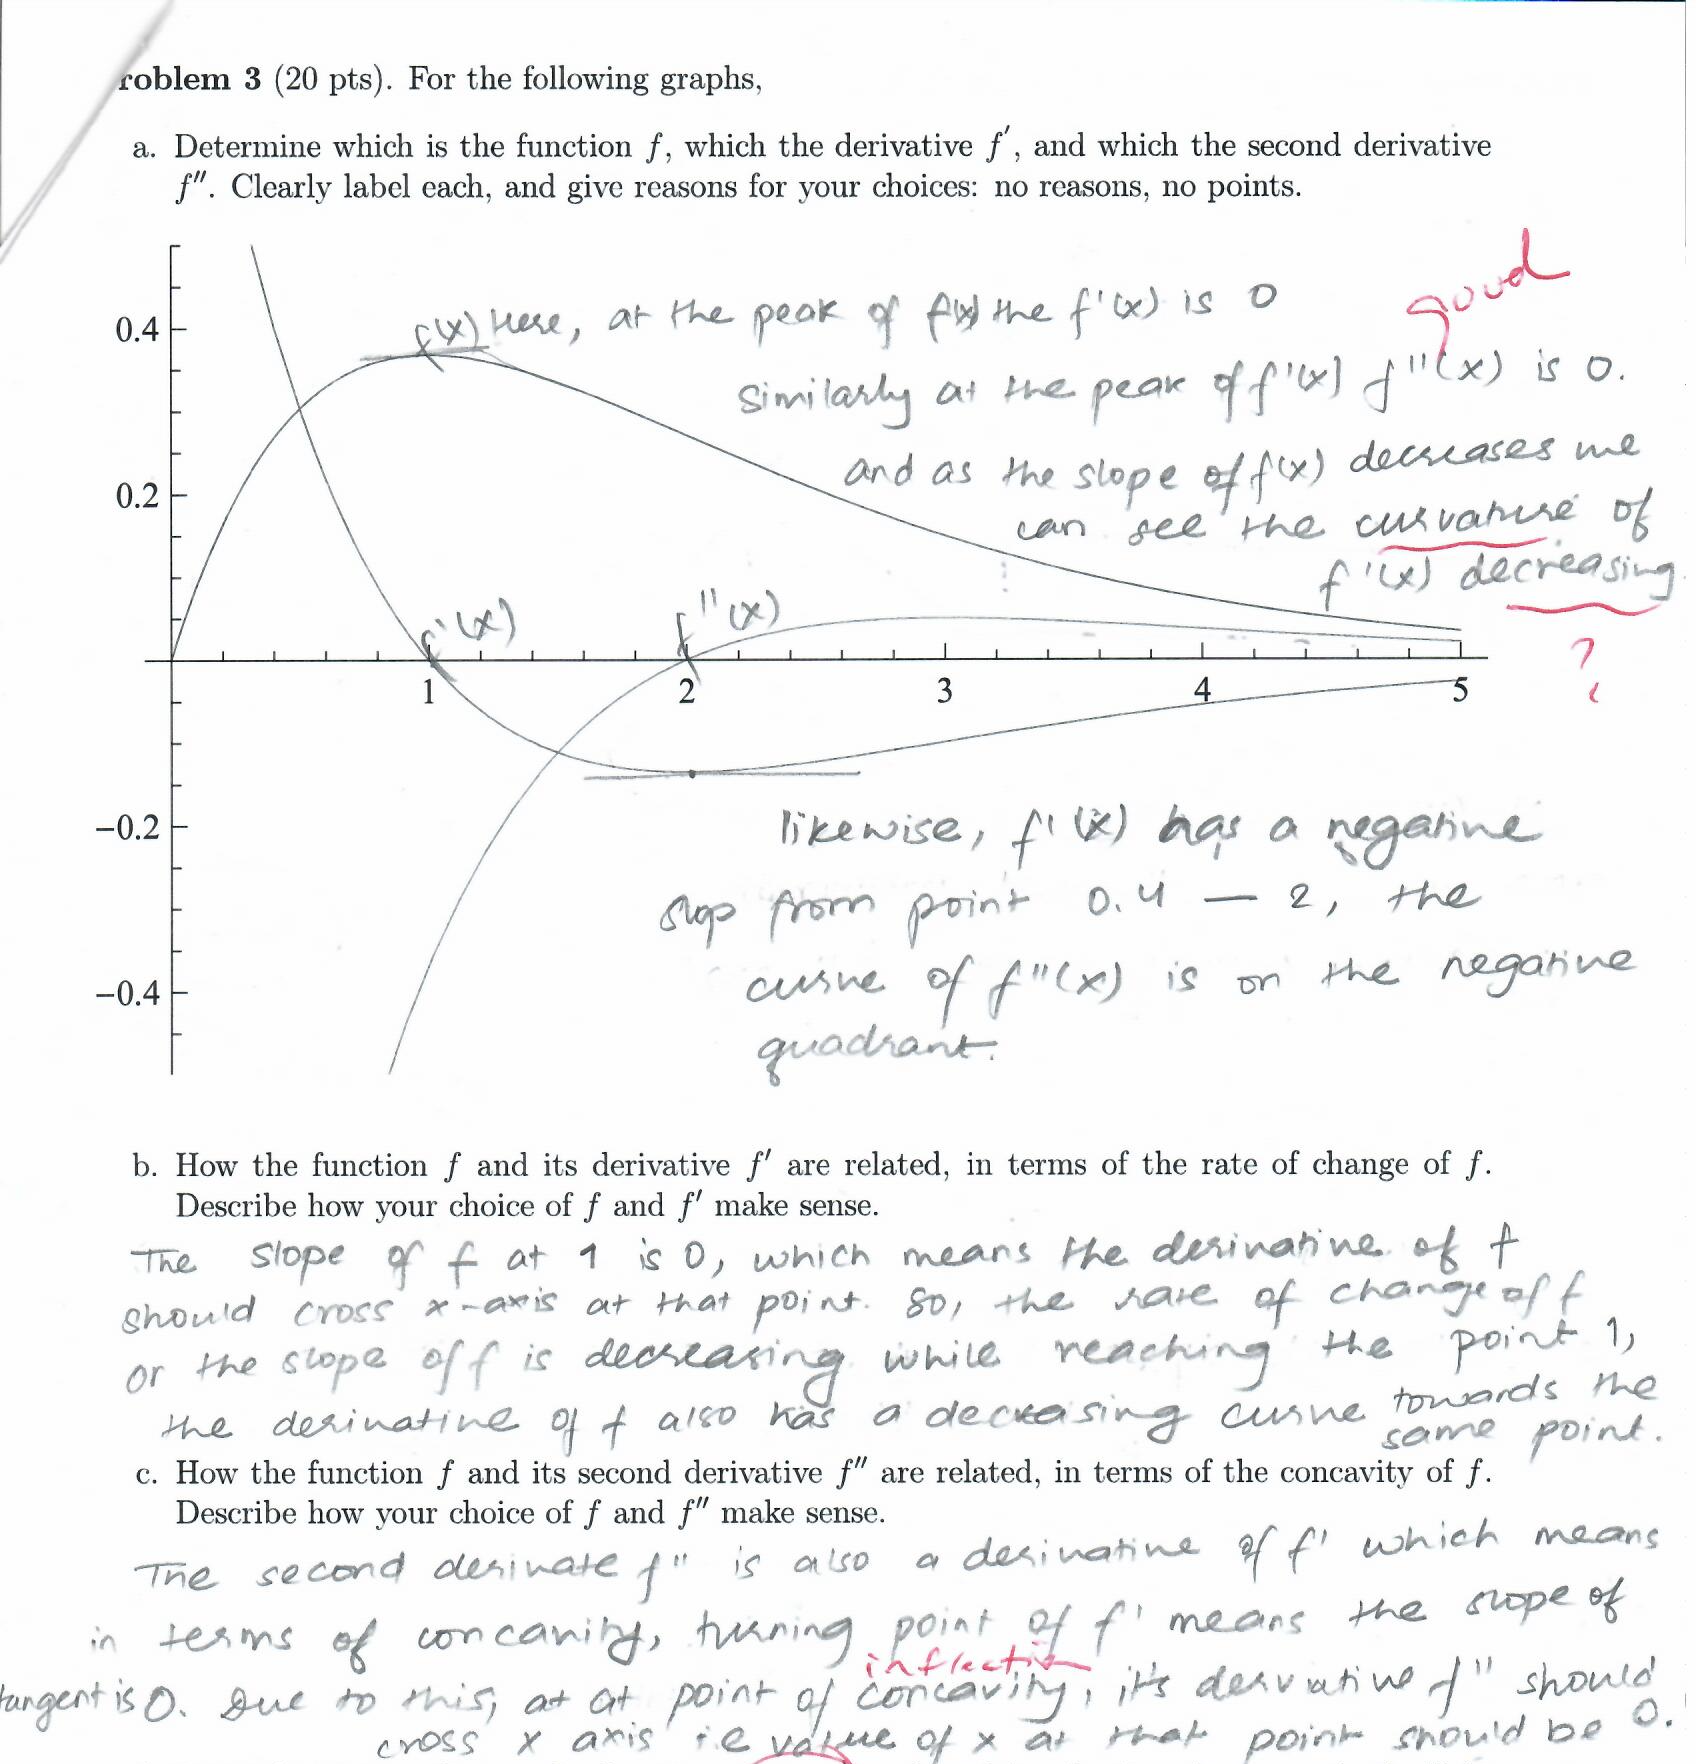 roblem 3 (20 pts). For the following graphs,
a. Determine which is the function f, which the derivative f′, and which the second derivative
f″. Clearly label each, and give reasons for your choices: no reasons, no points.
good
0.4
f(x) Here, at the peak of f(x) the f'(x) is 0
Similarly at the peak of f'(x) f''(x) is 0.
and as the slope of f(x) decreases we
0.2
can see the curvature of
f'(x) decreasing
?
f'(x)
f''(x)
1 2 3 4 5
-0.2
likewise, f'(x) has a negative
slop from point 0.4 — 2, the
-0.4
curve of f''(x) is on the negative
quadrant.
b. How the function f and its derivative f′ are related, in terms of the rate of change of f.
Describe how your choice of f and f′ make sense.
The slope of f at 1 is 0, which means the derivative of f
should cross x-axis at that point. So, the rate of change of f
or the slope of f is decreasing while reaching the point 1,
the derivative of f also has a decreasing curve towards the
same point.
c. How the function f and its second derivative f″ are related, in terms of the concavity of f.
Describe how your choice of f and f″ make sense.
The second derivate f'' is also a derivative of f' which means
in terms of concavity, turning point of f' means the slope of
inflection
tangent is 0. Due to this, at at point of concavity, it's derivative f'' should
cross x axis i.e value of x at that point should be 0.